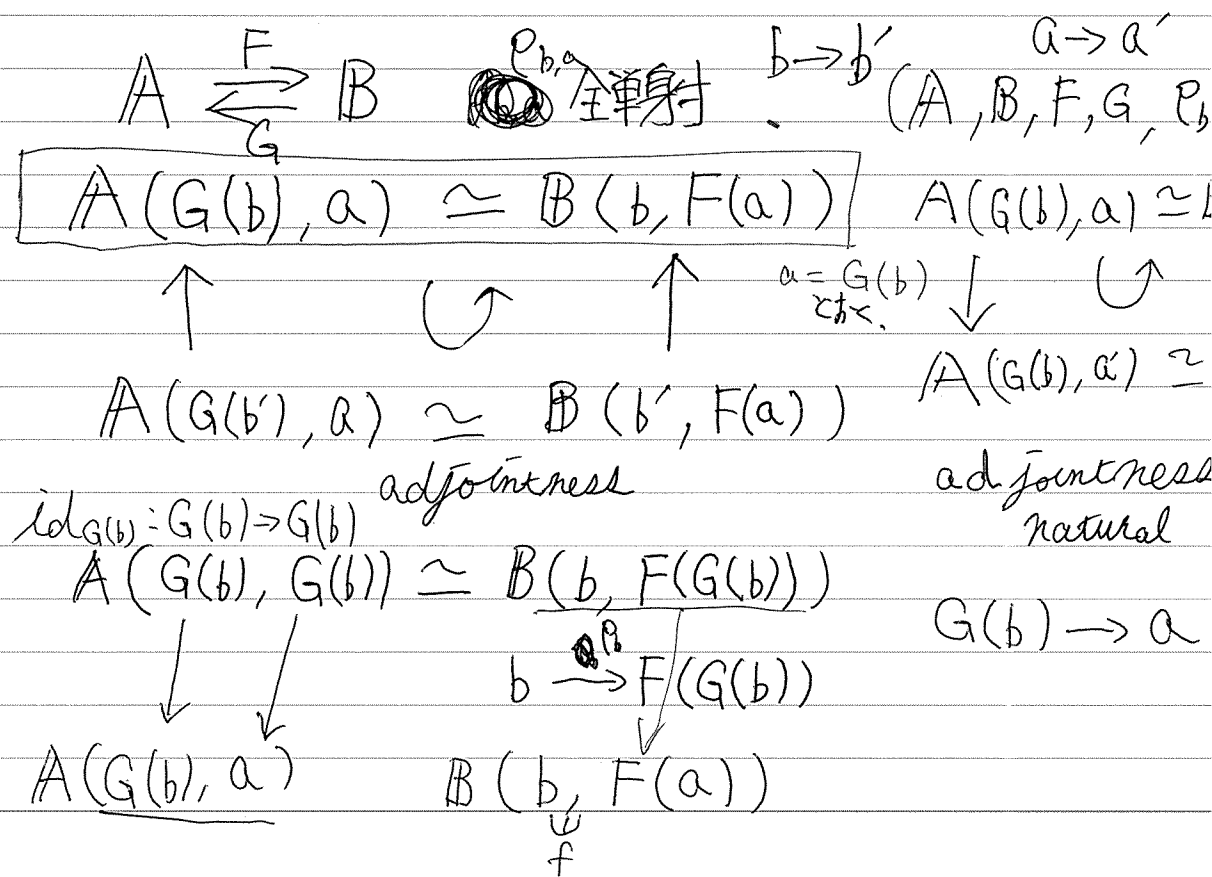 F
𝔸 ⇄ 𝔹 ρ_{b,a} 全単射 . b→b′ a→a′
G (𝔸, 𝔹, F, G, ρ_b
𝔸(G(b), a) ≃ 𝔹(b, F(a)) 𝔸(G(b), a) ≃
↑ ↺ ↑ a = G(b) ↓ ↺
とおく.
𝔸(G(b′), a) ≃ 𝔹(b′, F(a)) 𝔸(G(b), a′) ≃
adjointness adjointness
id_{G(b)} : G(b)→G(b) natural
𝔸(G(b), G(b)) ≃ 𝔹(b, F(G(b))) G(b) → a
b →^{ρ_b} F(G(b))
𝔸(G(b), a) 𝔹(b, F(a))
f